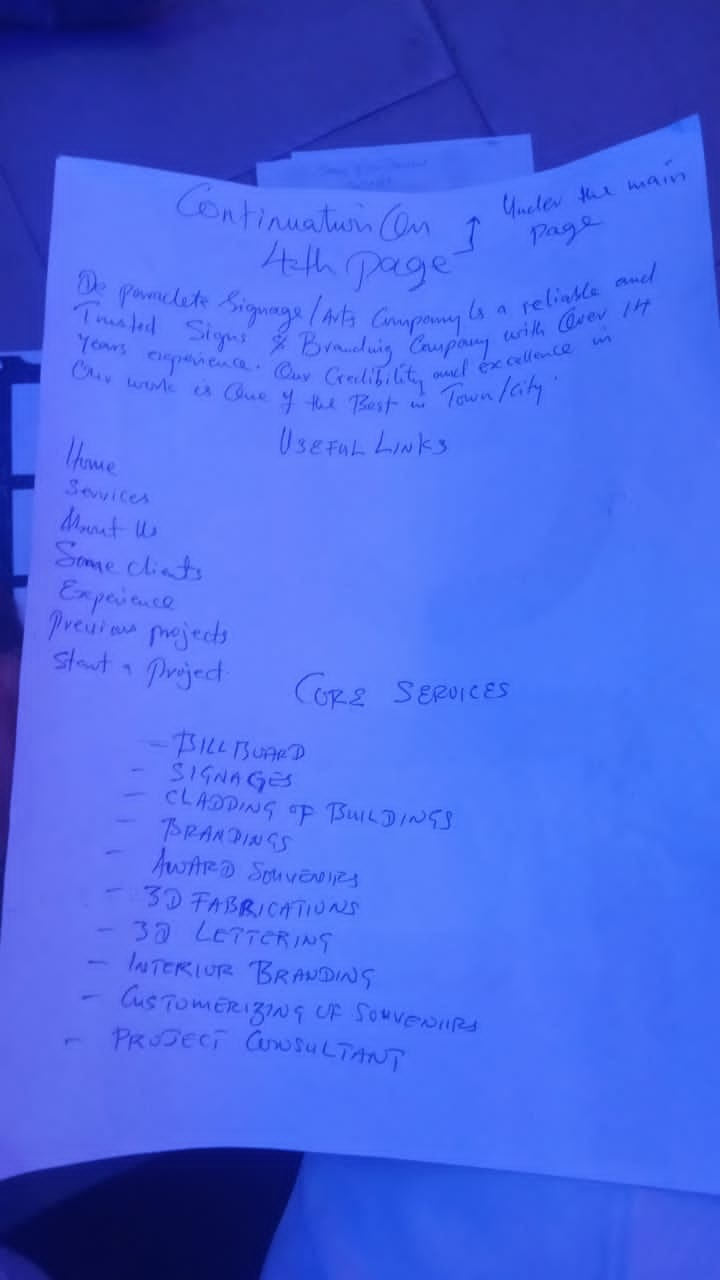 Continuation On
4th page
Under the main
page
De paraclete Signage/Arts Company is a reliable and
Trusted Signs & Branding Company with Over 14
years experience. Our Credibility and excellence in
Our work is One of the Best in Town/City.
USEFUL LINKS
Home
Services
About Us
Some clients
Experience
Previous projects
Start a Project
CORE SERVICES
- BILLBOARD
- SIGNAGES
- CLADDING OF BUILDINGS
- BRANDINGS
- AWARD SOUVENIRS
- 3D FABRICATIONS
- 3D LETTERING
- INTERIOR BRANDING
- CUSTOMERIZING OF SOUVENIIRS
- PROJECT CONSULTANT